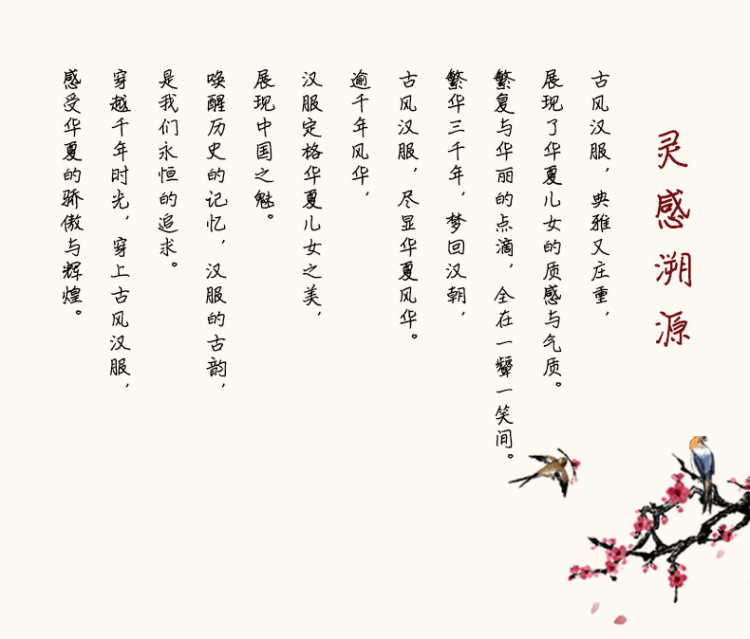 灵感溯源
古风汉服，典雅又庄重，
展现了华夏儿女的质感与气质。
繁复与华丽的点滴，全在一颦一笑间。
繁华三千年，梦回汉朝，
古风汉服，尽显华夏风华。
逾千年风华，
汉服定格华夏儿女之美，
展现中国之魅。
唤醒历史的记忆，汉服的古韵，
是我们永恒的追求。
穿越千年时光，穿上古风汉服，
感受华夏的骄傲与辉煌。